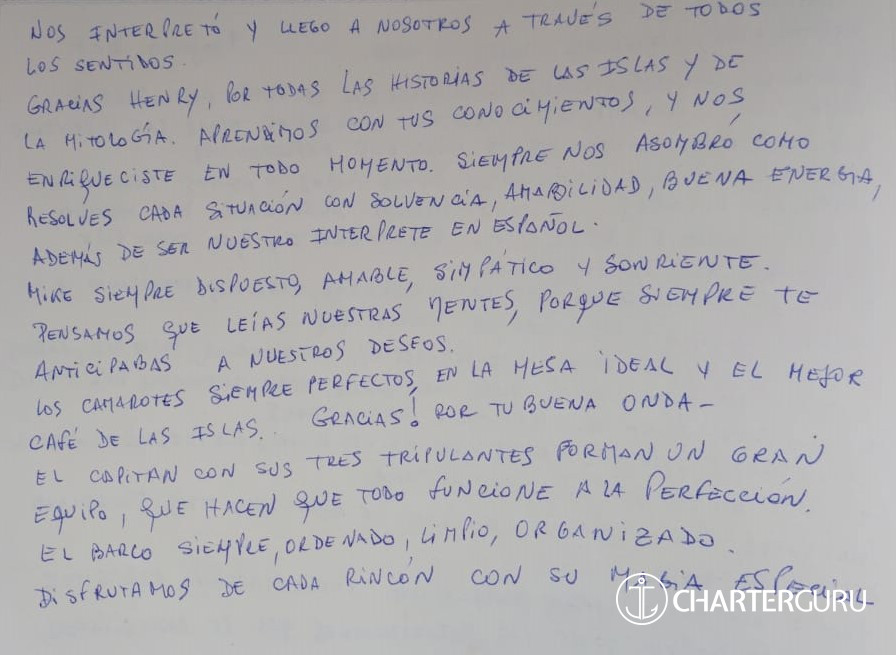 NOS INTERPRETÓ Y LLEGO A NOSOTROS A TRAVÉS DE TODOS
LOS SENTIDOS.
GRACIAS HENRY, POR TODAS LAS HISTORIAS DE LAS ISLAS Y DE
LA MITOLOGÍA. APRENDIMOS CON TUS CONOCIMIENTOS, Y NOS
ENRIQUECISTE EN TODO MOMENTO. SIEMPRE NOS ASOMBRÓ COMO
RESOLVES CADA SITUACIÓN CON SOLVENCIA, AMABILIDAD, BUENA ENERGIA,
ADEMÁS DE SER NUESTRO INTERPRETE EN ESPAÑOL.
MIKE SIEMPRE DISPUESTO, AMABLE, SIMPÁTICO Y SONRIENTE.
PENSAMOS QUE LEÍAS NUESTRAS MENTES, PORQUE SIEMPRE TE
ANTICIPABAS A NUESTROS DESEOS.
LOS CAMAROTES SIEMPRE PERFECTOS, EN LA MESA IDEAL Y EL MEJOR
CAFÉ DE LAS ISLAS.. GRACIAS! POR TU BUENA ONDA-
EL CAPITAN CON SUS TRES TRIPULANTES FORMAN UN GRAN
EQUIPO, QUE HACEN QUE TODO FUNCIONE A LA PERFECCIÓN.
EL BARCO SIEMPRE, ORDENADO, LIMPIO, ORGANIZADO.
DISFRUTAMOS DE CADA RINCÓN CON SU MAGIA ESPECIAL
CHARTERGURU